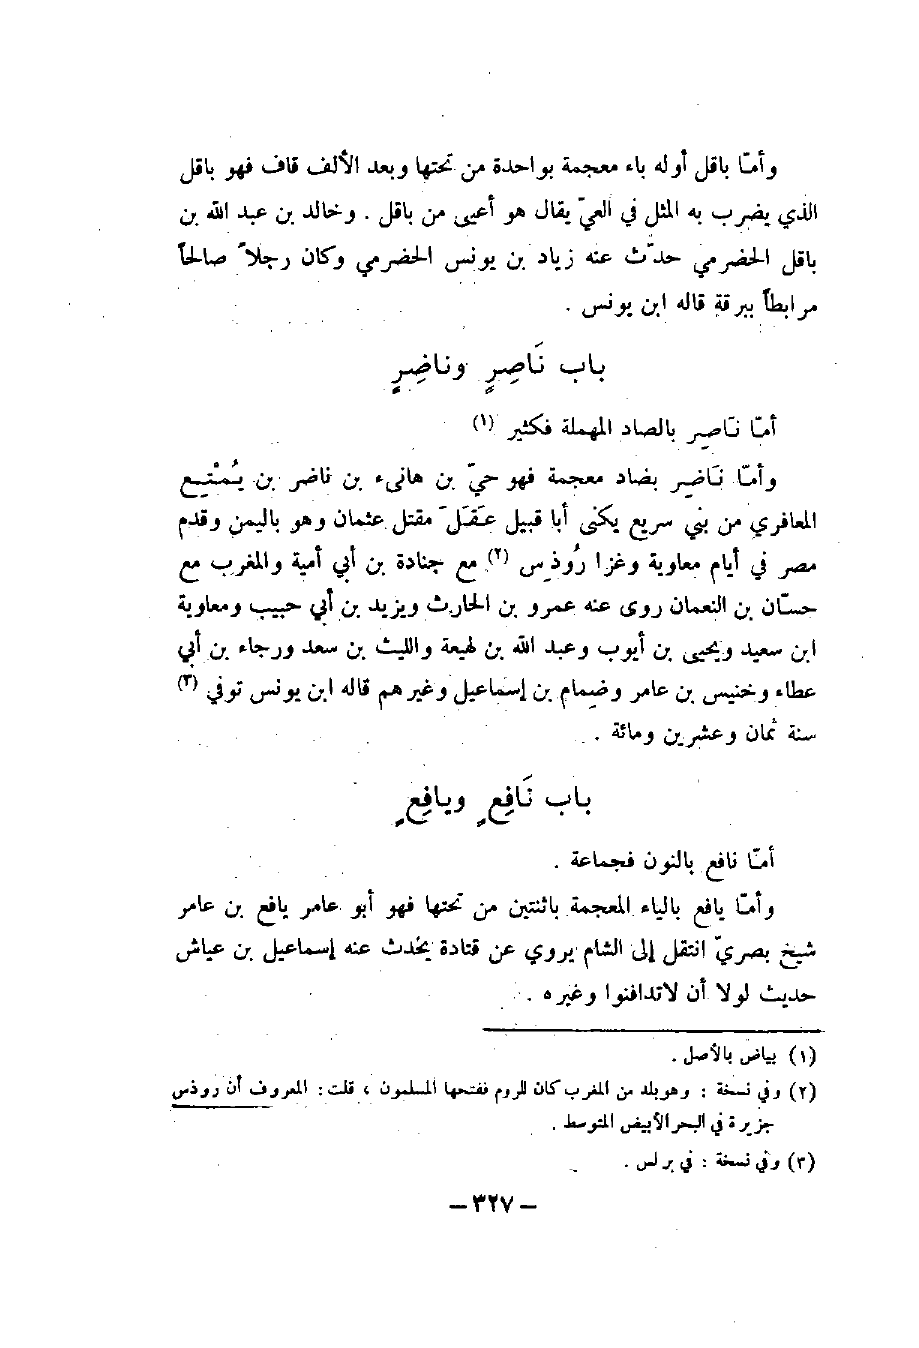 وأمّا باقل أوله باء معجمة بواحدة من تحتها وبعد الألف قاف فهو باقل
الذي يضرب به المثل في العيّ يقال هو أعيى من باقل . وخالد بن عبد الله بن
باقل الحضرمي حدّث عنه زياد بن يونس الحضرمي وكان رجلاً صالحاً
مرابطاً ببرقة قاله ابن يونس .
باب نَاصِرٍ وناضِرٍ
أمّا نَاصِر بالصاد المهملة فكثير (١)
وأمّا نَاضِر بضاد معجمة فهو حيّ بن هانىء بن ناضر بن يُمْنِع
المعافري من بني سريع يكنى أبا قبيل عَقَلَ مقتل عثمان وهو باليمن وقدم
مصر في أيام معاوية وغزا رُوذس (٢) مع جنادة بن أبي أمية والمغرب مع
حسّان بن النعمان روى عنه عمرو بن الحارث ويزيد بن أبي حبيب ومعاوية
ابن سعيد ويحيى بن أيوب وعبد الله بن لهيعة والليث بن سعد ورجاء بن أبي
عطاء وخنيس بن عامر وضمام بن إسماعيل وغيرهم قاله ابن يونس توفي (٣)
سنة ثمان وعشرين ومائة .
باب نَافِعٍ ويافِعٍ
أمّا نافع بالنون فجماعة .
وأمّا يافع بالياء المعجمة باثنتين من تحتها فهو أبو عامر يافع بن عامر
شيخ بصريّ انتقل إلى الشام يروي عن قتادة يحُدث عنه إسماعيل بن عياش
حديث لولا أن لاتدافنوا وغيره .
(١) بياض بالأصل .
(٢) وفي نسخة : وهوبلد من المغرب كان للروم ففتحها المسلمون ، قلت : المعروف أن روذس
جزيرة في البحر الأبيض المتوسط .
(٣) وفي نسخة : في برلس .
– ٣٢٧ –